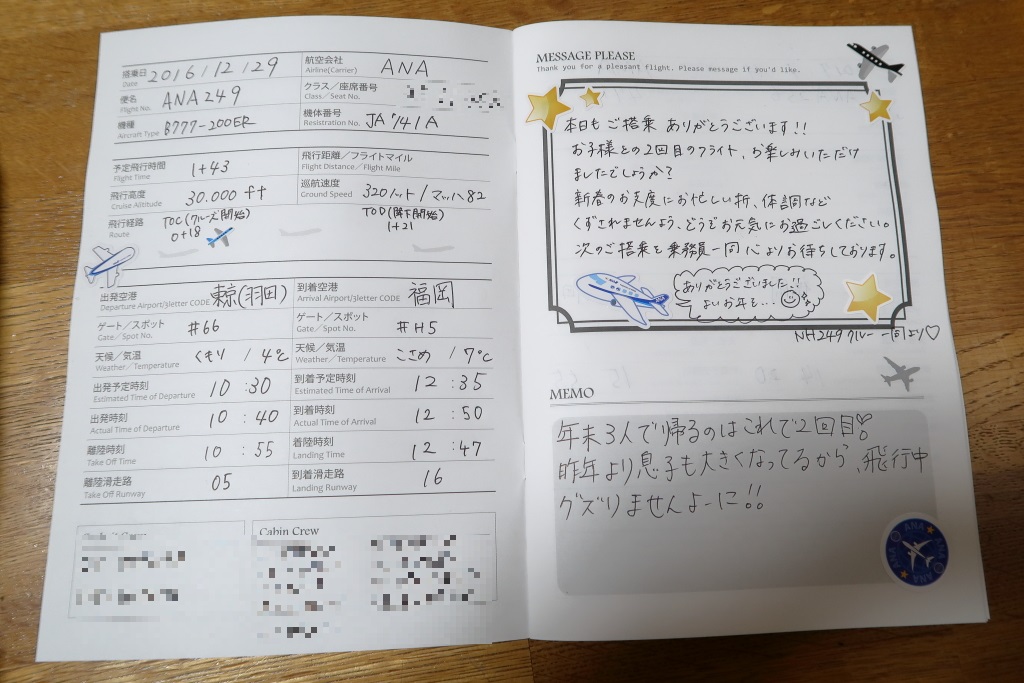 搭乗日 Date 2016/12/29
航空会社 Airline(Carrier) ANA
便名 Flight No. ANA249
クラス/座席番号 Class/Seat No.
機種 Aircraft Type B777-200ER
機体番号 Resistration No. JA741A
予定飛行時間 Flight Time 1+43
飛行距離/フライトマイル Flight Distance/Flight Mile
飛行高度 Cruise Altitude 30.000 ft
巡航速度 Ground Speed 320ノット/マッハ82
飛行経路 Route TOC(クルーズ開始) 0+18
TOD(降下開始) 1+21
出発空港 Departure Airport/3letter CODE 東京(羽田)
到着空港 Arrival Airport/3letter CODE 福岡
ゲート/スポット Gate/Spot No. #66
ゲート/スポット Gate/Spot No. #H5
天候/気温 Weather/Temperature くもり/4℃
天候/気温 Weather/Temperature こさめ/7℃
出発予定時刻 Estimated Time of Departure 10:30
到着予定時刻 Estimated Time of Arrival 12:35
出発時刻 Actual Time of Departure 10:40
到着時刻 Actual Time of Arrival 12:50
離陸時刻 Take Off Time 10:55
着陸時刻 Landing Time 12:47
離陸滑走路 Take Off Runway 05
到着滑走路 Landing Runway 16
Cabin Crew
MESSAGE PLEASE
Thank you for a pleasant flight. Please message if you'd like.
本日もご搭乗ありがとうございます!!
お子様との2回目のフライト、お楽しみいただけ
ましたでしょうか?
新春のお支度にお忙しい折、体調など
くずされませんよう、どうぞお元気にお過ごしください。
次のご搭乗を乗務員一同心よりお待ちしております。
ありがとうございました!!
よいお年を…
NH249 クルー 一同より♡
MEMO
年末3人で帰るのはこれで2回目!
昨年より息子も大きくなってるから、飛行中
グズりませんよーに!!
ANA